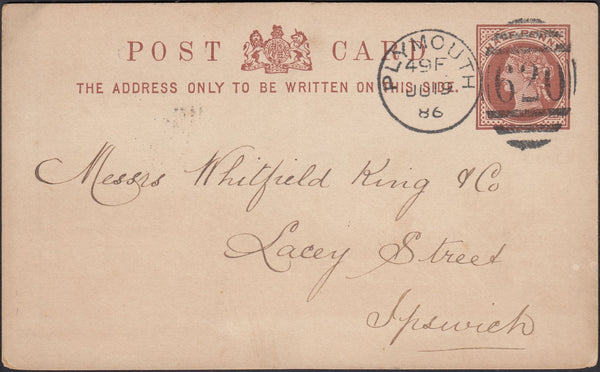 POST CARD
THE ADDRESS ONLY TO BE WRITTEN ON THIS SIDE.
PLYMOUTH
86
620
Messrs Whitfield King & Co
Lacey Street
Ipswich